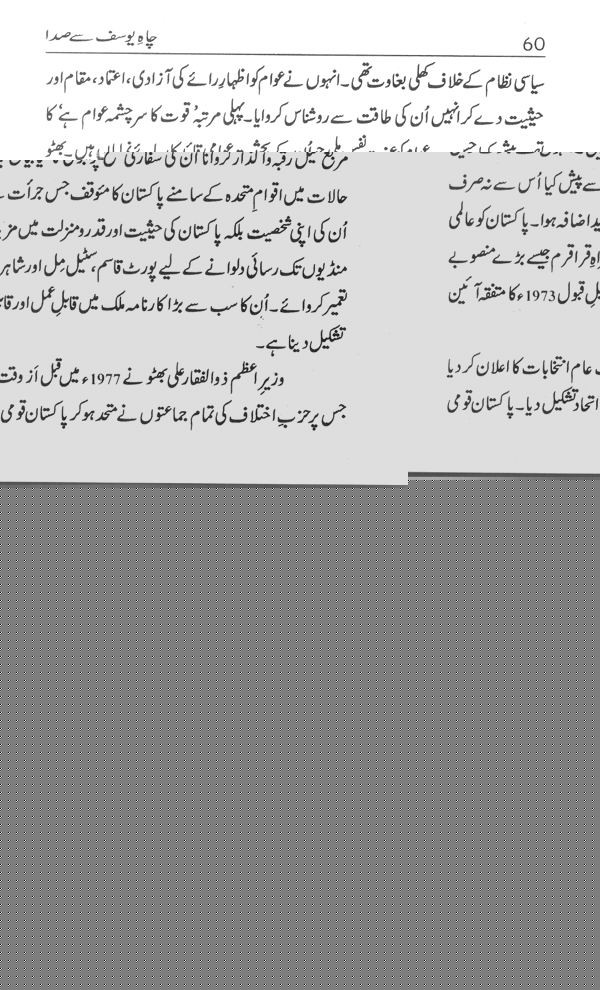 60
چاہِ یوسف سے صدا
سیاسی نظام کے خلاف کھلی بغاوت تھی۔ انہوں نے عوام کو اظہارِ رائے کی آزادی، اعتماد، مقام اور
حیثیت دے کر انہیں اُن کی طاقت سے روشناس کروایا۔ پہلی مرتبہ ’قوت کا سرچشمہ عوام ہے‘ کا
حالات میں اقوامِ متحدہ کے سامنے پاکستان کا مؤقف جس جرأت
اُن کی اپنی شخصیت بلکہ پاکستان کی حیثیت اور قدر و منزلت میں
منڈیوں تک رسائی دلوانے کے لیے پورٹ قاسم، سٹیل مِل اور
تعمیر کروائے۔ اُن کا سب سے بڑا کارنامہ ملک میں قابلِ عمل اور
تشکیل دینا ہے۔
وزیرِ اعظم ذوالفقار علی بھٹو نے 1977ء میں قبل از وقت
جس پر حزبِ اختلاف کی تمام جماعتوں نے متحد ہو کر پاکستان قومی
سے پیش کیا اُس سے نہ صرف
اضافہ ہوا۔ پاکستان کو عالمی
قراقرم جیسے بڑے منصوبے
قبول 1973ء کا متفقہ آئین
عام انتخابات کا اعلان کر دیا
اتحاد تشکیل دیا۔ پاکستان قومی